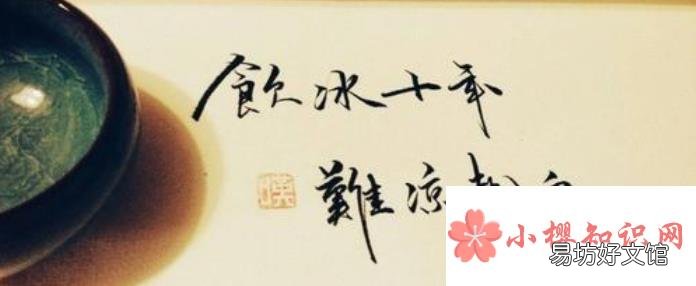 飲冰十年
難涼熱血
小樱知识网
易坊好文馆